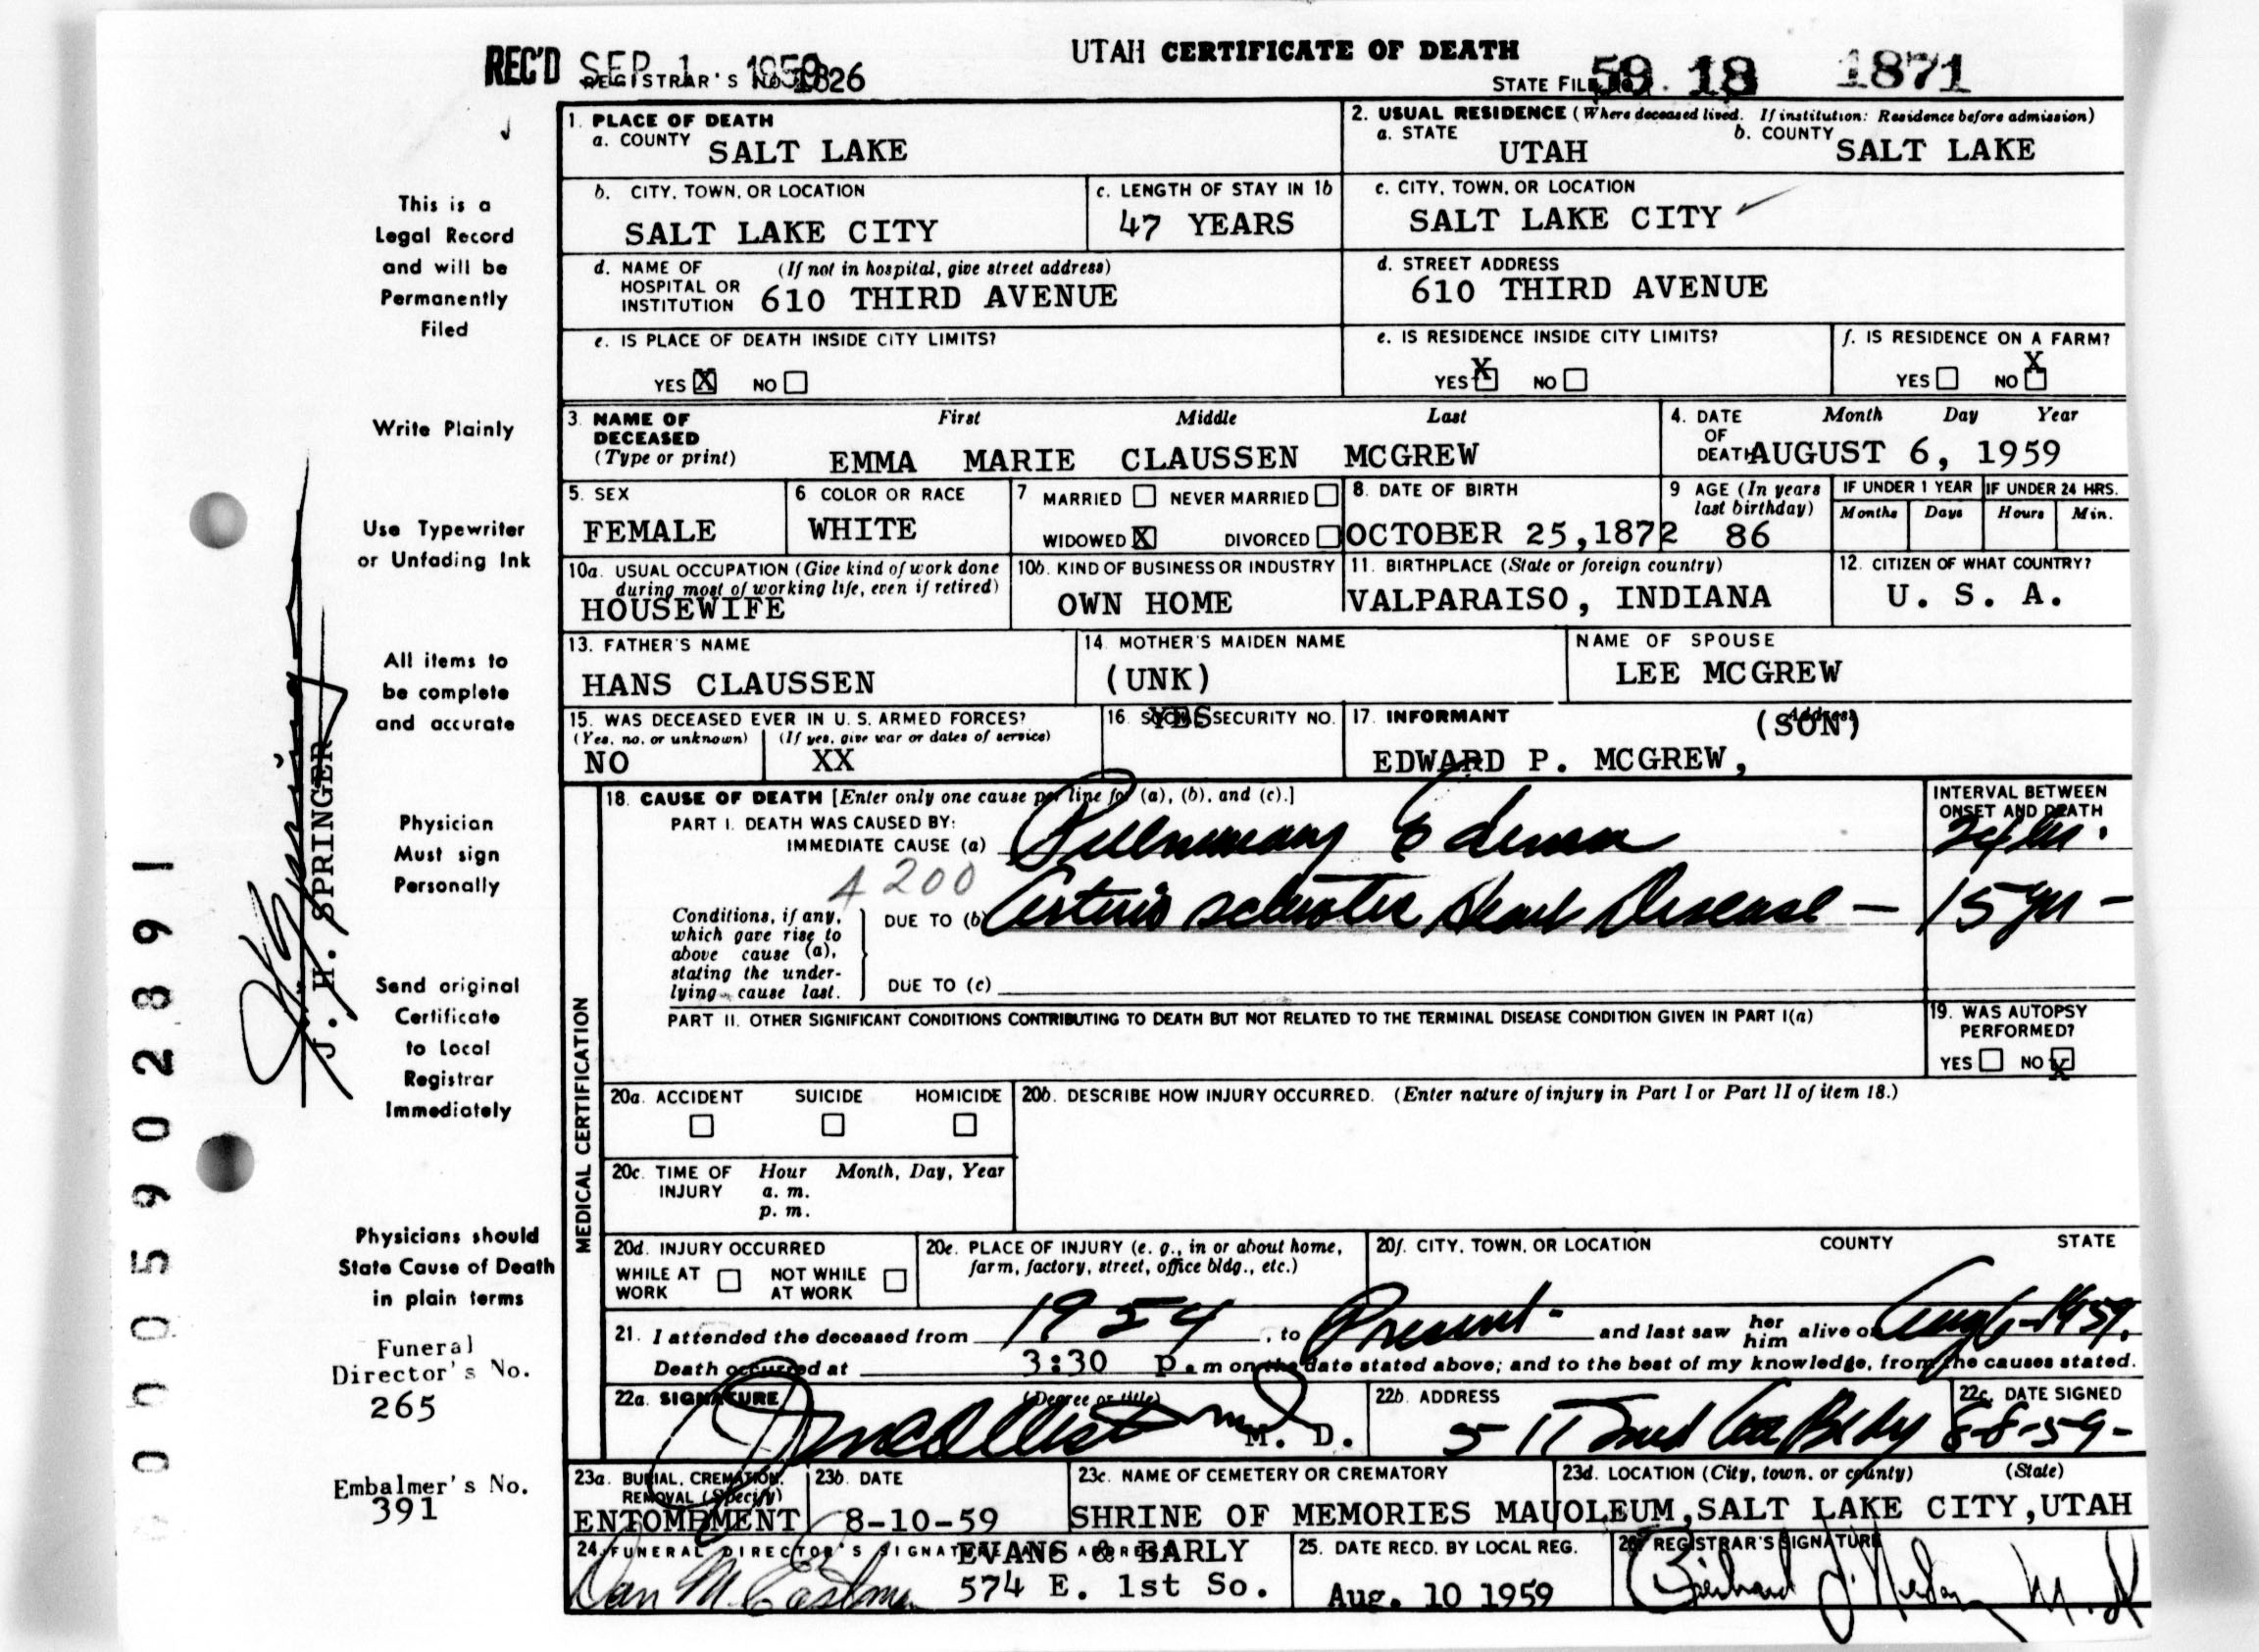 UTAH CERTIFICATE OF DEATH
REC'D SEP 1 1959
REGISTRAR'S NO. 1826
STATE FILE NO. 59 18 1871
1. PLACE OF DEATH
a. COUNTY SALT LAKE
2. USUAL RESIDENCE (Where deceased lived. If institution: Residence before admission)
a. STATE UTAH b. COUNTY SALT LAKE
b. CITY, TOWN, OR LOCATION
SALT LAKE CITY
c. LENGTH OF STAY IN 1b
47 YEARS
c. CITY, TOWN, OR LOCATION
SALT LAKE CITY
d. NAME OF HOSPITAL OR INSTITUTION (If not in hospital, give street address)
610 THIRD AVENUE
d. STREET ADDRESS
610 THIRD AVENUE
e. IS PLACE OF DEATH INSIDE CITY LIMITS?
YES X NO
e. IS RESIDENCE INSIDE CITY LIMITS?
YES X NO
f. IS RESIDENCE ON A FARM?
YES NO X
3. NAME OF DECEASED (Type or print)
First Middle Last
EMMA MARIE CLAUSSEN MCGREW
4. DATE OF DEATH Month Day Year
AUGUST 6, 1959
5. SEX
FEMALE
6 COLOR OR RACE
WHITE
7 MARRIED NEVER MARRIED
WIDOWED X DIVORCED
8. DATE OF BIRTH
OCTOBER 25, 1872
9 AGE (In years last birthday)
86
IF UNDER 1 YEAR
Months Days
IF UNDER 24 HRS.
Hours Min.
10a. USUAL OCCUPATION (Give kind of work done during most of working life, even if retired)
HOUSEWIFE
10b. KIND OF BUSINESS OR INDUSTRY
OWN HOME
11. BIRTHPLACE (State or foreign country)
VALPARAISO, INDIANA
12. CITIZEN OF WHAT COUNTRY?
U. S. A.
13. FATHER'S NAME
HANS CLAUSSEN
14. MOTHER'S MAIDEN NAME
(UNK)
NAME OF SPOUSE
LEE MCGREW
15. WAS DECEASED EVER IN U. S. ARMED FORCES?
(Yes, no, or unknown) (If yes, give war or dates of service)
NO XX
16. SOCIAL SECURITY NO.
YES
17. INFORMANT Address
(SON)
EDWARD P. MCGREW,
MEDICAL CERTIFICATION
18. CAUSE OF DEATH [Enter only one cause per line for (a), (b), and (c).]
INTERVAL BETWEEN ONSET AND DEATH
PART I. DEATH WAS CAUSED BY:
IMMEDIATE CAUSE (a) Pulmonary Edema
4200
Conditions, if any, which gave rise to above cause (a), stating the underlying cause last.
DUE TO (b) Arterio sclerotic Heart Disease — 15 yrs —
DUE TO (c)
PART II. OTHER SIGNIFICANT CONDITIONS CONTRIBUTING TO DEATH BUT NOT RELATED TO THE TERMINAL DISEASE CONDITION GIVEN IN PART I(a)
19. WAS AUTOPSY PERFORMED?
YES NO X
20a. ACCIDENT SUICIDE HOMICIDE
20b. DESCRIBE HOW INJURY OCCURRED. (Enter nature of injury in Part I or Part II of item 18.)
20c. TIME OF INJURY Hour Month, Day, Year
a. m.
p. m.
20d. INJURY OCCURRED
WHILE AT WORK NOT WHILE AT WORK
20e. PLACE OF INJURY (e. g., in or about home, farm, factory, street, office bldg., etc.)
20f. CITY, TOWN, OR LOCATION COUNTY STATE
21. I attended the deceased from 1954, to Present - and last saw her him alive on Aug 6 - 1959.
Death occurred at 3:30 p. m on the date stated above; and to the best of my knowledge, from the causes stated.
22a. SIGNATURE (Degree or title)
M. D.
22b. ADDRESS
22c. DATE SIGNED
8-8-59-
23a. BURIAL, CREMATION, REMOVAL (Specify)
ENTOMBMENT
23b. DATE
8-10-59
23c. NAME OF CEMETERY OR CREMATORY
SHRINE OF MEMORIES MAUOLEUM,
23d. LOCATION (City, town, or county) (State)
SALT LAKE CITY, UTAH
24. FUNERAL DIRECTOR'S SIGNATURE AND ADDRESS
Dan M. Eastman
EVANS & EARLY
574 E. 1st So.
25. DATE RECD. BY LOCAL REG.
Aug. 10 1959
26. REGISTRAR'S SIGNATURE
This is a
Legal Record
and will be
Permanently
Filed
Write Plainly
Use Typewriter
or Unfading Ink
All items to
be complete
and accurate
Physician
Must sign
Personally
Send original
Certificate
to Local
Registrar
Immediately
Physicians should
State Cause of Death
in plain terms
Funeral
Director's No.
265
Embalmer's No.
391
J. H. SPRINGER
0005902891